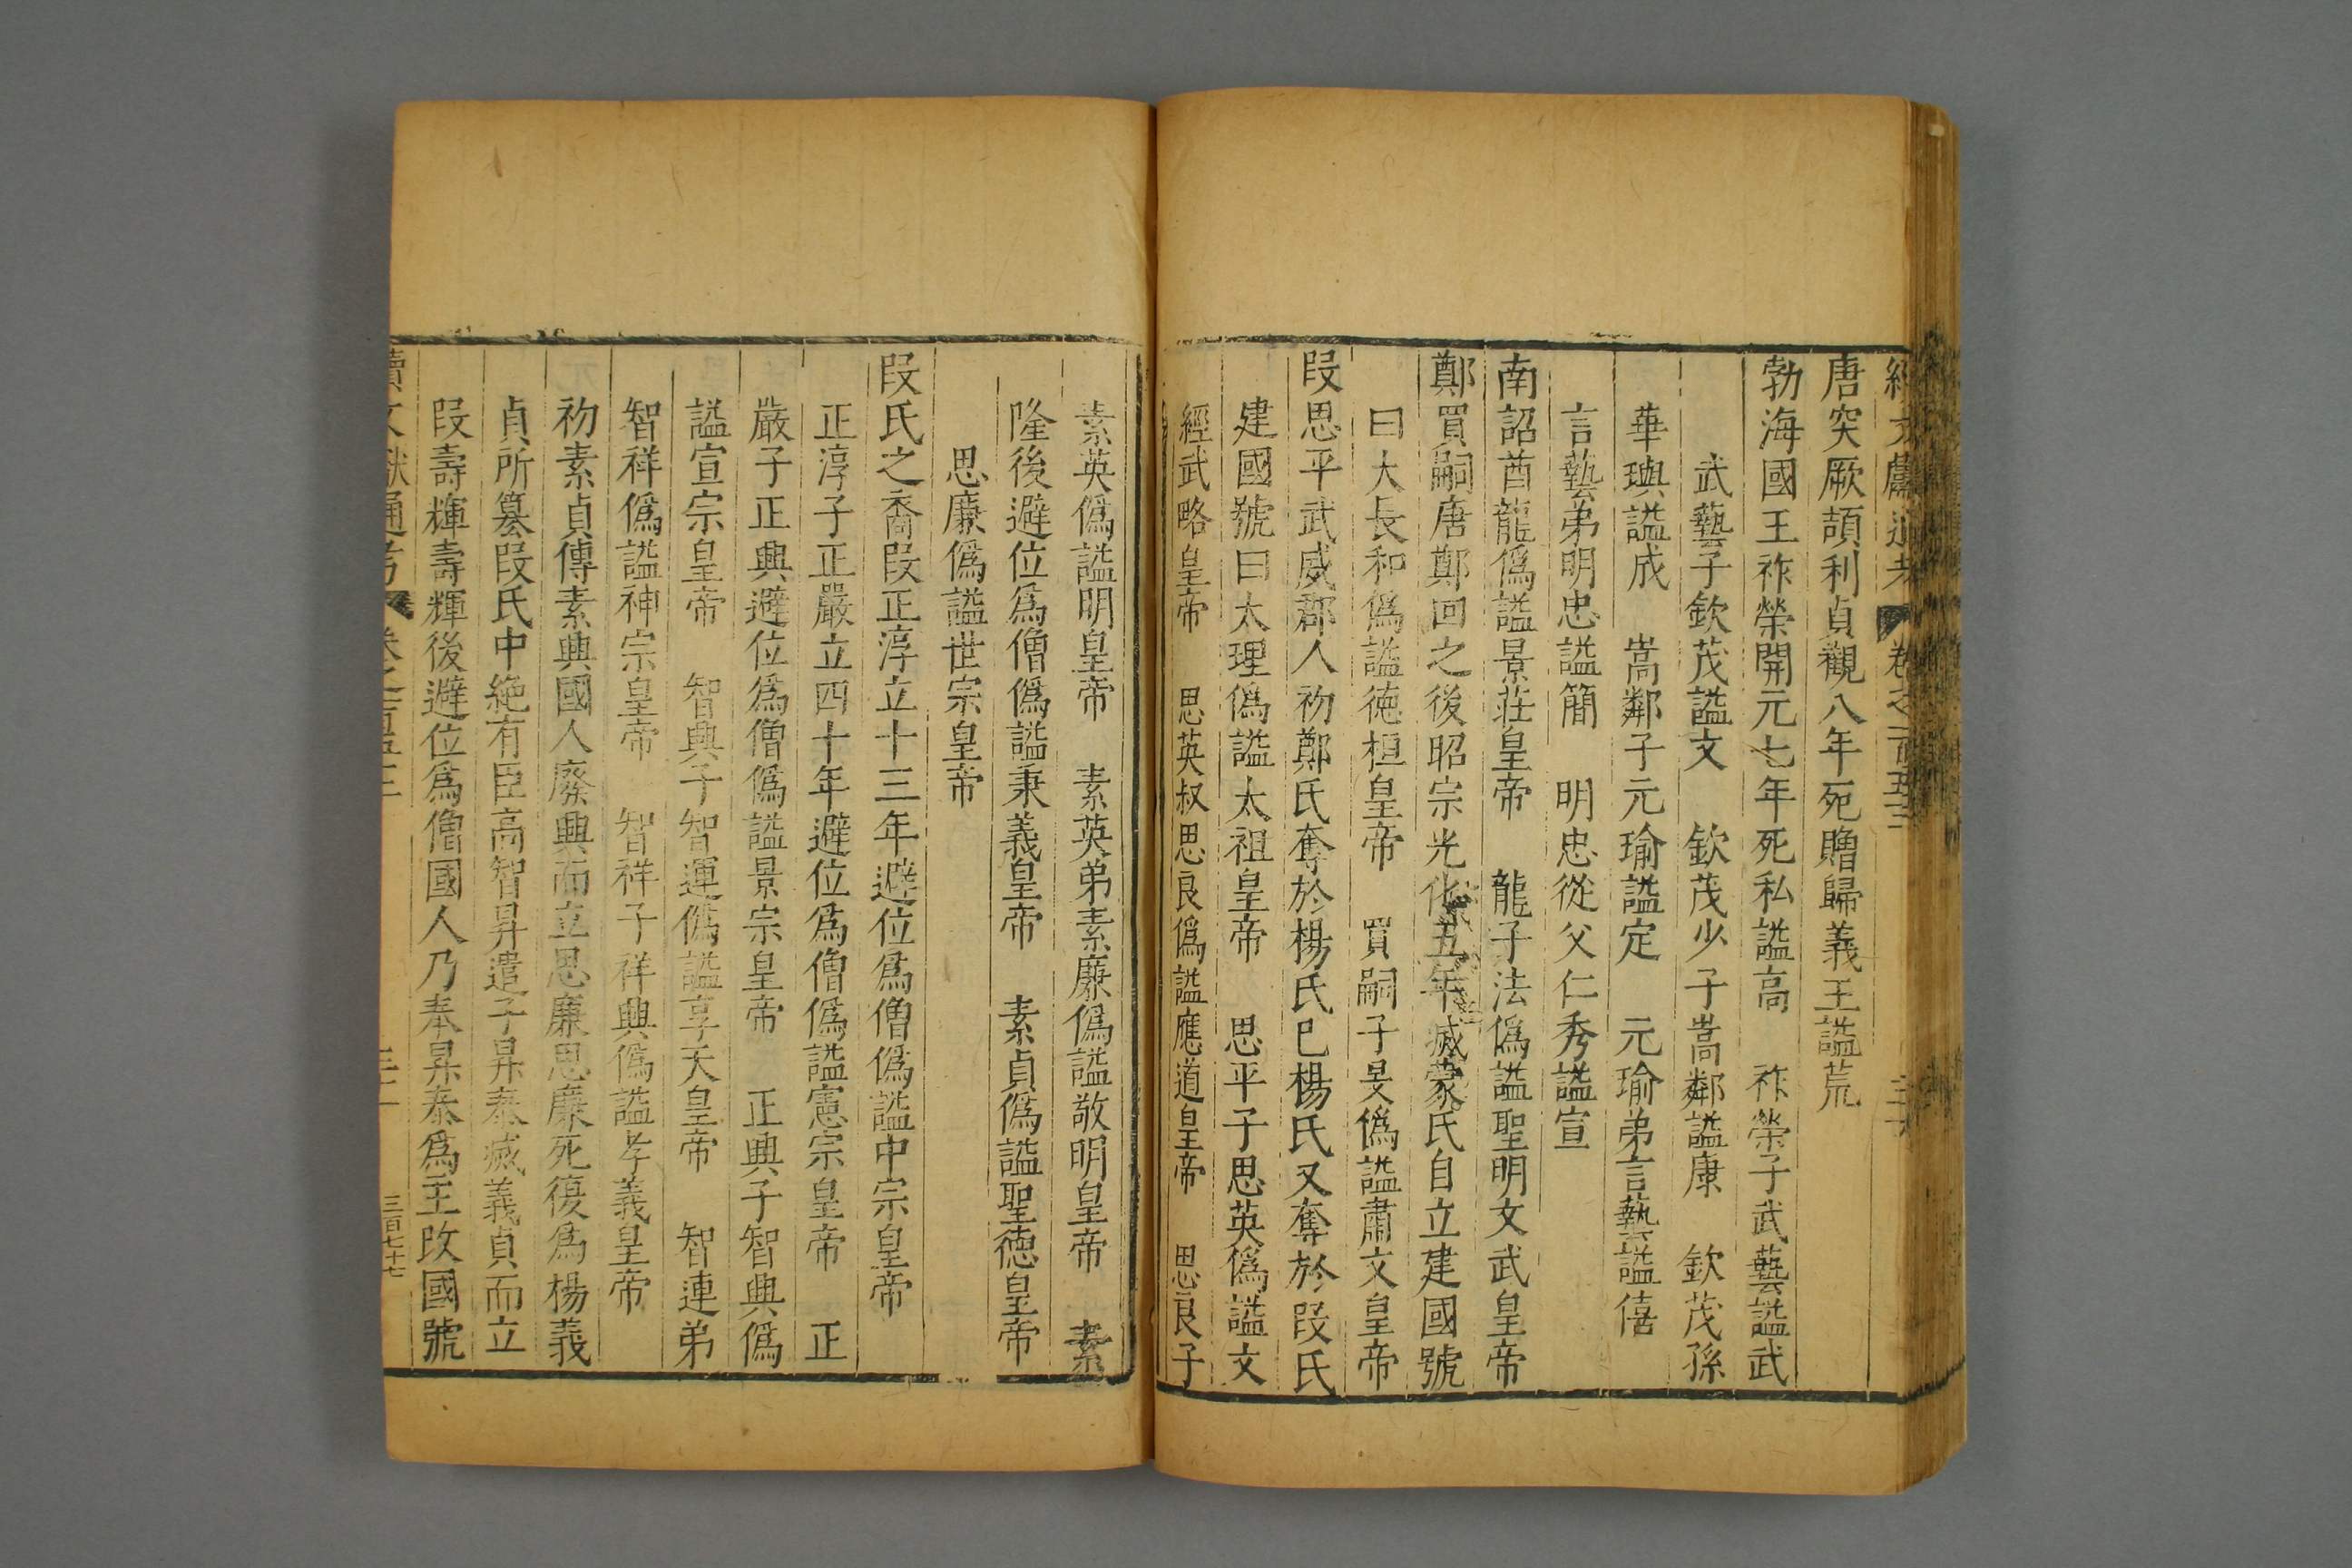 唐突厥頡利貞觀八年死贈歸義王謚荒
勃海國王祚榮開元七年死私謚高　祚榮子武藝謚武
武藝子欽茂謚文　欽茂少子嵩鄰謚康　欽茂孫
華璵謚成　嵩鄰子元瑜謚定　元瑜弟言藝謚僖
言藝弟明忠謚簡　明忠從父仁秀謚宣
南詔酋龍僞謚景莊皇帝　龍子法僞謚聖明文武皇帝
鄭買嗣唐鄭回之後昭宗光化五年滅蒙氏自立建國號
曰大長和僞謚德桓皇帝　買嗣子旻僞謚肅文皇帝
段思平武威郡人初鄭氏奪於楊氏巳楊氏又奪於段氏
建國號曰太理僞謚太祖皇帝　思平子思英僞謚文
經武略皇帝　思英叔思良僞謚應道皇帝　思良子
素英僞謚明皇帝　素英弟素廉僞謚敬明皇帝　素
隆後避位爲僧僞謚秉義皇帝　素貞僞謚聖德皇帝
思廉僞謚世宗皇帝
段氏之裔段正淳立十三年避位爲僧僞謚中宗皇帝
正淳子正嚴立四十年避位爲僧僞謚憲宗皇帝　正
嚴子正興避位爲僧僞謚景宗皇帝　正興子智興僞
謚宣宗皇帝　智興子智運僞謚享天皇帝　智連弟
智祥僞謚神宗皇帝　智祥子祥興僞謚孝義皇帝
初素貞傳素興國人廢興而立思廉思廉死復爲楊義
貞所篡段氏中絶有臣高智昇遣子昇泰滅義貞而立
段壽輝壽輝後避位爲僧國人乃奉昇泰爲王改國號
續文獻通考　卷之一百五十二
三百七十七